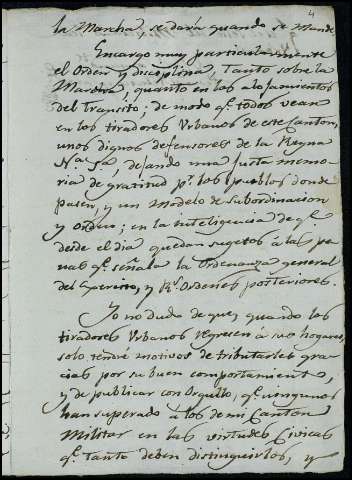 4
la Marcha, se dará quando se Mande
Encargo muy particularmente
el Orden y disciplina, tanto sobre la
Marcha, quanto en los alojamientos
del Transito; de modo qe. todos vean
en los tiradores Urbanos de este Canton,
unos dignos defensores de la Reyna
Na. Sa., dejando una justa memo-
ria de gratitud pr. los pueblos donde
pasen, y un Modelo de Subordinacion
y Orden; en la inteligencia de qe.
desde el dia quedan sugetos á las pe-
nas qe. señala la Ordenanza general
del Exercito, y Rs. Ordenes posteriores.
Yo no dudo de que, quando los
tiradores Urbanos regresen á sus hogares,
solo tendré motivos de tributarles gra-
cias por su buen comportamiento,
y de publicar con Orgullo, qe. ningunos
han superado á los de mi Canton
Militar en las virtudes Civicas
qe. tanto deben distinguirlos, y